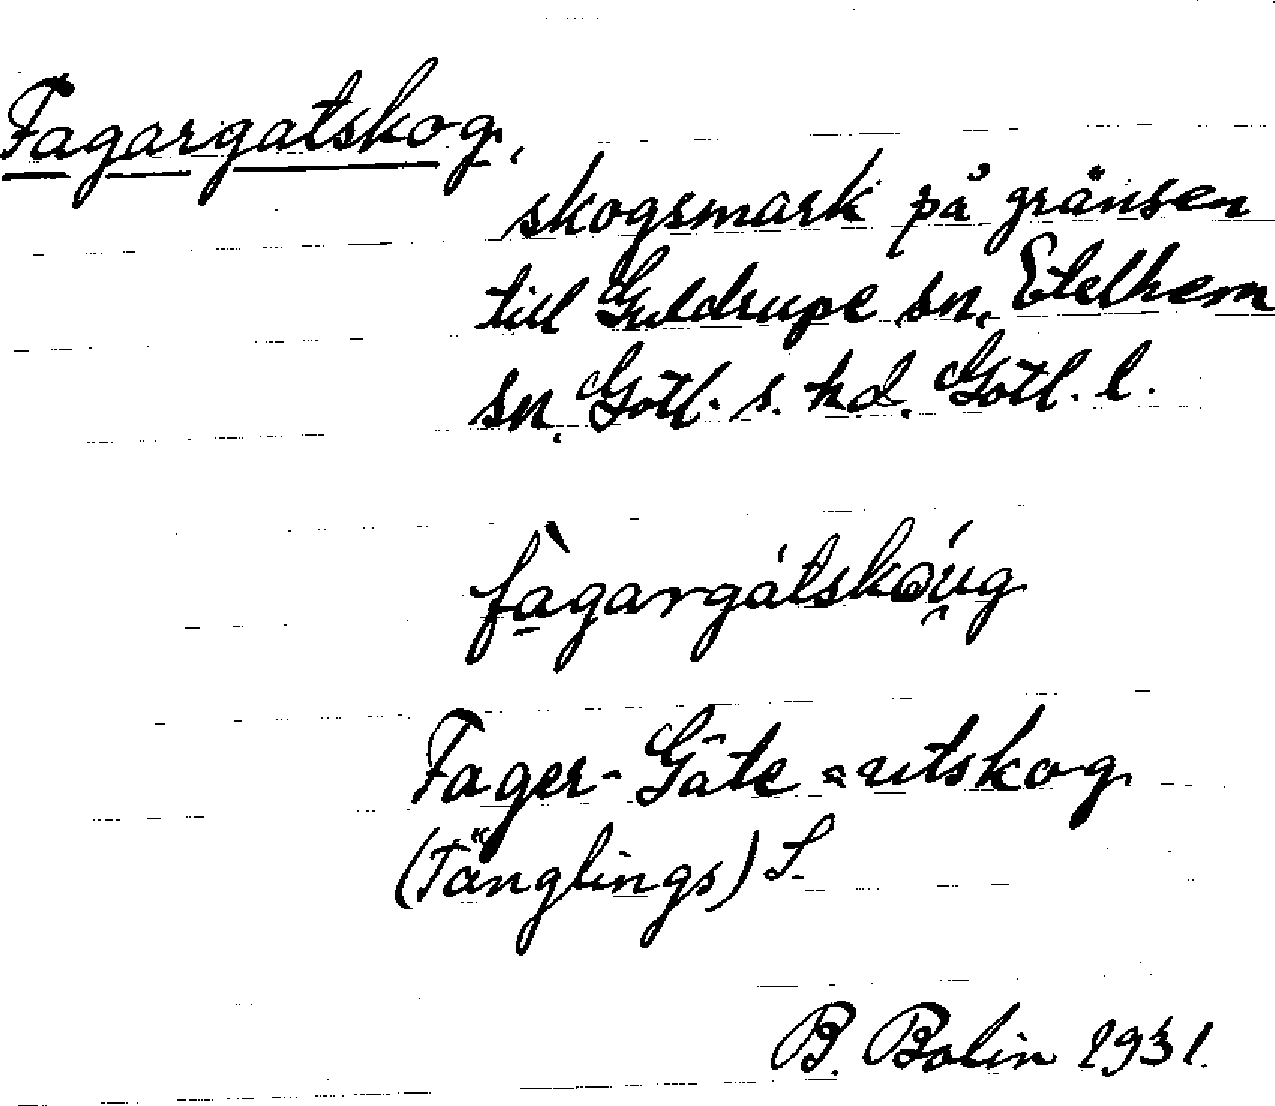 Fagargatskog,
skogsmark på gränsen
till Guldrupe sn, Etelhem
sn, Gotl. s. hd. Gotl. l.
fàgargátskǝ́u̯g
Fager-Gate = utskog
(Tänglings) S
B. Bolin 1931.